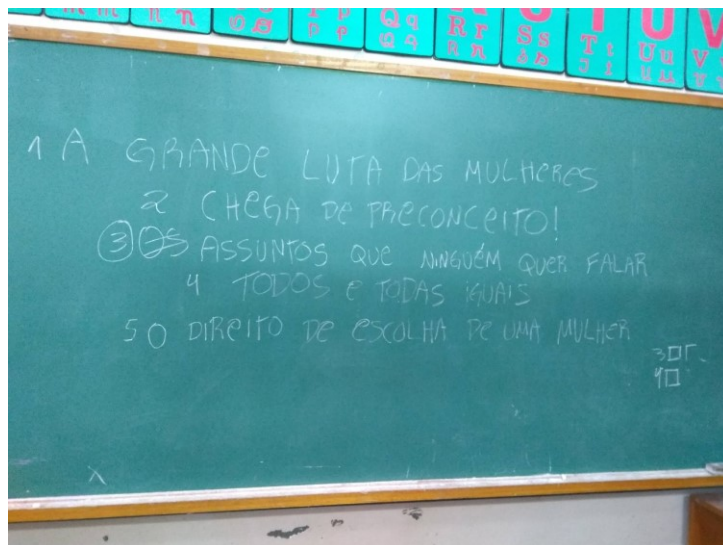 m m n n P p P p Q q Q q R r R r S s S s T t T t U u U u V v V v
1 A GRANDE LUTA DAS MULHERES
2 CHEGA DE PRECONCEITO!
3 OS ASSUNTOS QUE NINGUÉM QUER FALAR
4 TODOS E TODAS IGUAIS
5 O DIREITO DE ESCOLHA DE UMA MULHER
3
4